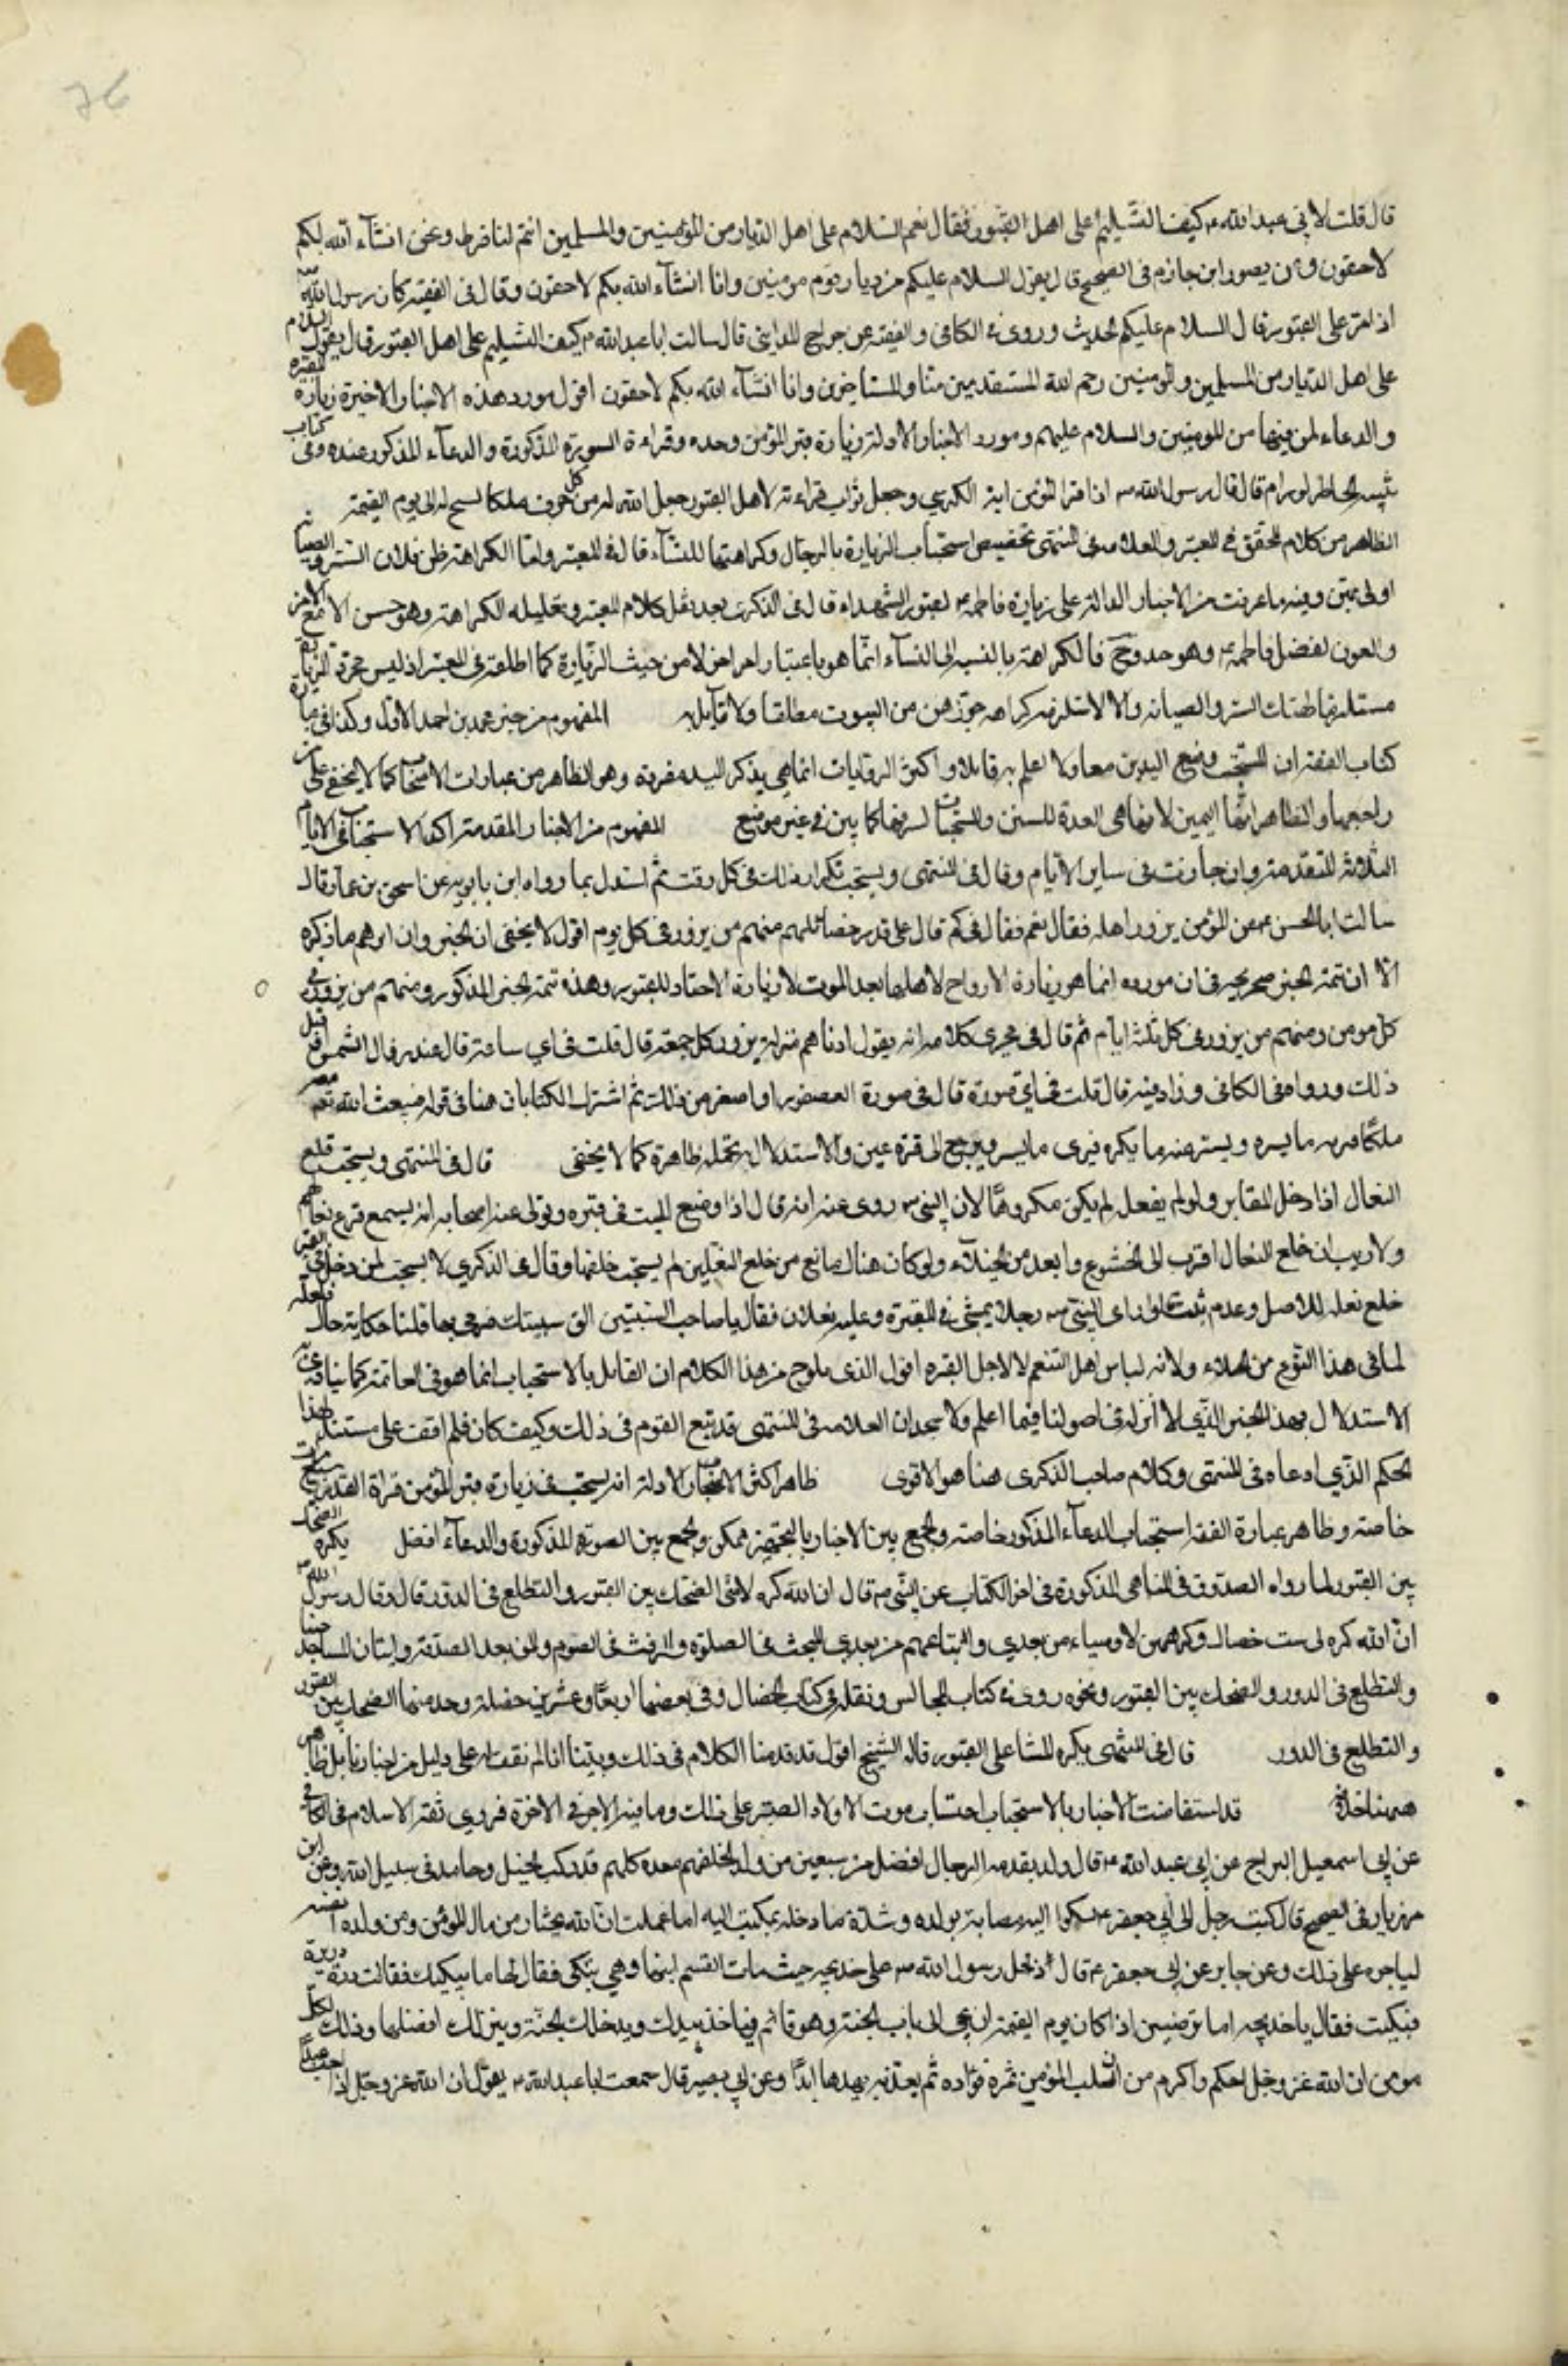 قال قلت لابي عبد الله ع كيف التسليم على اهل القبور فقال نعم السلام على اهل الديار من المؤمنين والمسلمين انتم لنا فرط ونحن انشآء الله بكم
لاحقون وعن منصور ابن حازم فى الصحيح قال يقول السلام عليكم من ديار قوم مومنين وانا انشآء الله بكم لاحقون وقال فى الفقيه كان رسول الله ص
اذا مر على القبور قال السلام عليكم الحديث وروى فى الكافى والفقيه عن جراح المدايني قال سالت ابا عبد الله ع كيف التسليم على اهل القبور قال يقول السلام
على اهل الديار من المسلمين والمومنين رحم الله المستقدمين منا والمستاخرين وانا انشآء الله بكم لاحقون اقول مورد هذه الاخبار الاخيرة زيارة المقبرة
والدعاء لمن فيها من المومنين والسلام عليهم ومورد الاخبار الاولة زيارة قبر المؤمن وحده وقراءة السورة المذكورة والدعآء المذكور عنده وفى كتاب
تنبيه الخاطر لورام قال قال رسول الله ص اذا قرا المؤمن اية الكرسي وجعل ثواب قراءته لاهل القبور جعل الله له من كل حرف ملكا يسبح له الى يوم القيمة
الظاهر من كلام المحقق فى المعتبر والعلامه فى المنتهى تخصيص استحباب الزيارة بالرجال وكراهتها للنسآء قال فى المعتبر واما الكراهة لهن فلان الستر والصيانة
اولى بهن وفيه ما عرفت من الاخبار الدالة على زيارة فاطمة ع لقبور الشهداء قال فى الذكرى بعد نقل كلام المعتبر وتعليله الكراهة وهو حسن الا مع الامن
والصون لفعل فاطمة ع وهو جيد وح فالكراهة بالنسبة الى النسآء انما هو باعتبار امر اخر لا من حيث الزيارة كما اطلقه فى المعتبر اذ ليس مجرد الزيارة
مستلزما لهتك الستر والصيانة والا لاستلزم كراهة خروجهن من البيوت مطلقا ولا قآيل به المفهوم من خبر محمد بن احمد الاول وكذا فى عبارة
كتاب الفقه ان المستحب وضع اليدين معا ولا اعلم به قائلا واكثر الروايات انما هي بذكر اليد مفردة وهو الظاهر من عبارات الاصحاب كما لا يخفى على من
راجعها والظاهر انها اليمين لانها هى المعدة للسنن والمستحبات لشرفها كما بين فى غير موضع المفهوم من الاخبار المقدمة تاكد الاستحباب فى الايام
الثلاثه المتقدمة وان جازت فى ساير الايام وقال فى المنتهى ويستحب تكرار ذلك فى كل وقت ثم استدل بما رواه ابن بابويه عن اسحق بن عمار قال
سالت ابا الحسن ع عن المؤمن يزور اهله فقال نعم فقال فى كم قال على قدر فضائلهم منهم من يزور فى كل يوم اقول لا يخفى ان الخبر وان اوهم ما ذكره
الا ان تتمة الخبر صريحة فى ان مورده انما هو زيارة الارواح لاهلها بعد الموت لا زيارة الاحياء للقبور وهذه تتمة الخبر المذكور ومنهم من يزور فى
كل يومين ومنهم من يزور فى كل ثلثة ايام ثم قال فى مجرى كلامه انه يقول ادناهم منزلة يزور كل جمعة قال قلت فى اي ساعة قال عند زوال الشمس او قبل
ذلك ورواه فى الكافى وزاد فيه قال قلت فى اي صورة قال فى صورة العصفور او اصغر من ذلك ثم اشترك الكتابان هنا فى قوله فيبعث الله تعالى معه
ملكا فيريه ما يسره ويستر عنه ما يكره فيرى ما يسره ويرجع الى قرة عين والاستدلال به غفلة ظاهرة كما لا يخفى قال فى المنتهى ويستحب خلع
النعال اذا دخل المقابر ولو لم يفعل لم يكن مكروها لان النبي ص روى عنه انه قال اذا وضع الميت فى قبره وتولى عنه اصحابه انه يسمع قرع نعالهم
ولا ريب ان خلع النعال اقرب الى الخشوع وابعد من الخيلآء ولو كان هناك مانع من خلع النعلين لم يستحب خلعها وقال فى الذكرى لا يستحب لمن دخل المقبرة
خلع نعله للاصل وعدم ثبت قالوا راى النبي ص رجلا يمشي فى المقبرة وعليه نعلان فقال يا صاحب السبتيتين الق سبتيتك فرمى بهما قلنا حكاية حال فلعله
لما فى هذا النوع من الخيلاء ولانه لباس اهل التنعم لا لاجل المقبره اقول الذى يلوح من هذا الكلام ان القائل بالاستحباب انما هو من العامة كما ينبئ عنه
الاستدلال بهذا الخبر الذي لا اثر له فى اصولنا فيما اعلم ولا يبعد ان العلامه فى المنتهى قد تبع القوم فى ذلك وكيف كان فلم اقف على مستند لهذا
الحكم الذي ادعاه فى المنتهى وكلام صاحب الذكرى هنا هو الاقوى ظاهر اكثر الاخبار الاولة انه يستحب فى زيارة قبر المؤمن قراة القدر سبع مرات
خاصة وظاهر عبارة الفقه استحباب الدعآء المذكور خاصة والجمع بين الاخبار بالتخيير ممكن والجمع بين السورة المذكورة والدعآء افضل يكره الضحك
بين القبور لما رواه الصدوق فى المناهى المذكورة فى اخر الكتاب عن النبي ص قال ان الله كره لامتى الضحك بين القبور والتطلع فى الدور قال وقال رسول الله ص
ان الله كره لى ست خصال وكرههن للاوصياء من ولدي واتباعهم من بعدي العبث فى الصلوة والرفث فى الصوم والمن بعد الصدقة واتيان المساجد جنبا
والتطلع فى الدور والضحك بين القبور ونحوه روى فى كتاب المجالس ونقله فى كتاب الخصال وفى بعضها اربعا وعشرين خصلة وعد منها الضحك بين القبور
والتطلع فى الدور قال فى المنتهى يكره المشي على القبور قاله الشيخ اقول قد قدمنا الكلام فى ذلك وبينا انا لم نقف له على دليل من اخبارنا بل ظاهرها
قد استفاضت الاخبار بالاستحباب احتساب موت الاولاد والصبر على ذلك وما فيه الاجر فى الاخرة فروي ثقة الاسلام فى الكافى
عن ابي اسمعيل السراج عن ابي عبد الله ع قال ولد يقدمه الرجال افضل من سبعين من ولد يخلفهم بعده كلهم قد ركب الخيل وجاهد فى سبيل الله وعن ابن
مهزيار فى الصحيح قال كتب رجل الى ابي جعفر ع يشكوا اليه مصابه بولده وشدة ما دخله فكتب اليه اما علمت ان الله يختار من مال المؤمن ومن ولده انفسه
لياجره على ذلك وعن جابر عن ابي جعفر ع قال دخل رسول الله ص على خديجه حيث مات القسم ابنها وهي تبكى فقال لها ما يبكيك فقالت درت دريرة
فبكيت فقال يا خديجه اما ترضين اذا كان يوم القيمة ان تجي الى باب الجنة وهو قائم فياخذ بيدك ويدخلك الجنة وينزلك افضلها وذلك لكل
مومن ان الله عز وجل احكم واكرم من ان يسلب المؤمن ثمرة فؤاده ثم يعذبه بعدها ابدا وعن ابي بصير قال سمعت ابا عبد الله ع يقول ان الله عز وجل اذا احب عبدا